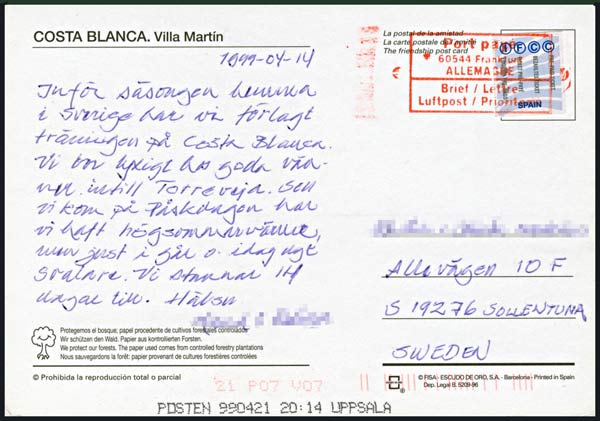 COSTA BLANCA. Villa Martín
1999-04-14
Inför säsongen hemma
i Sverige har vi förlagt
träningen på Costa Blanca.
Vi bor lyxigt hos goda vän-
ner intill Torrevieja. Sen
vi kom på Påskdagen har
vi haft högsommarvärme,
men just i går o. idag ngt
svalare. Vi stannar 14
dagar till. Hälsn
La postal de la amistad
La carte postale de l'amitié
The friendship post card
Port payé
60544 Frankfurt
ALLEMAGNE
Brief / Lettre
Luftpost / Prioritaire
IFCC
SPAIN
Allévägen 10 F
S 19276 SOLLENTUNA
SWEDEN
Protegemos el bosque; papel procedente de cultivos forestales controlados
Wir schützen den Wald. Papier aus kontrollierten Forsten.
We protect our forests. The paper used comes from controlled forestry plantations
Nous sauvegardons la forêt: papier provenant de cultures forestières contrôlées
© Prohibida la reproducción total o parcial
© FISA - ESCUDO DE ORO, S.A. - Barcelona - Printed in Spain
Dep. Legal B. 5209-96
21 P07 V07
POSTEN 990421 20:14 UPPSALA